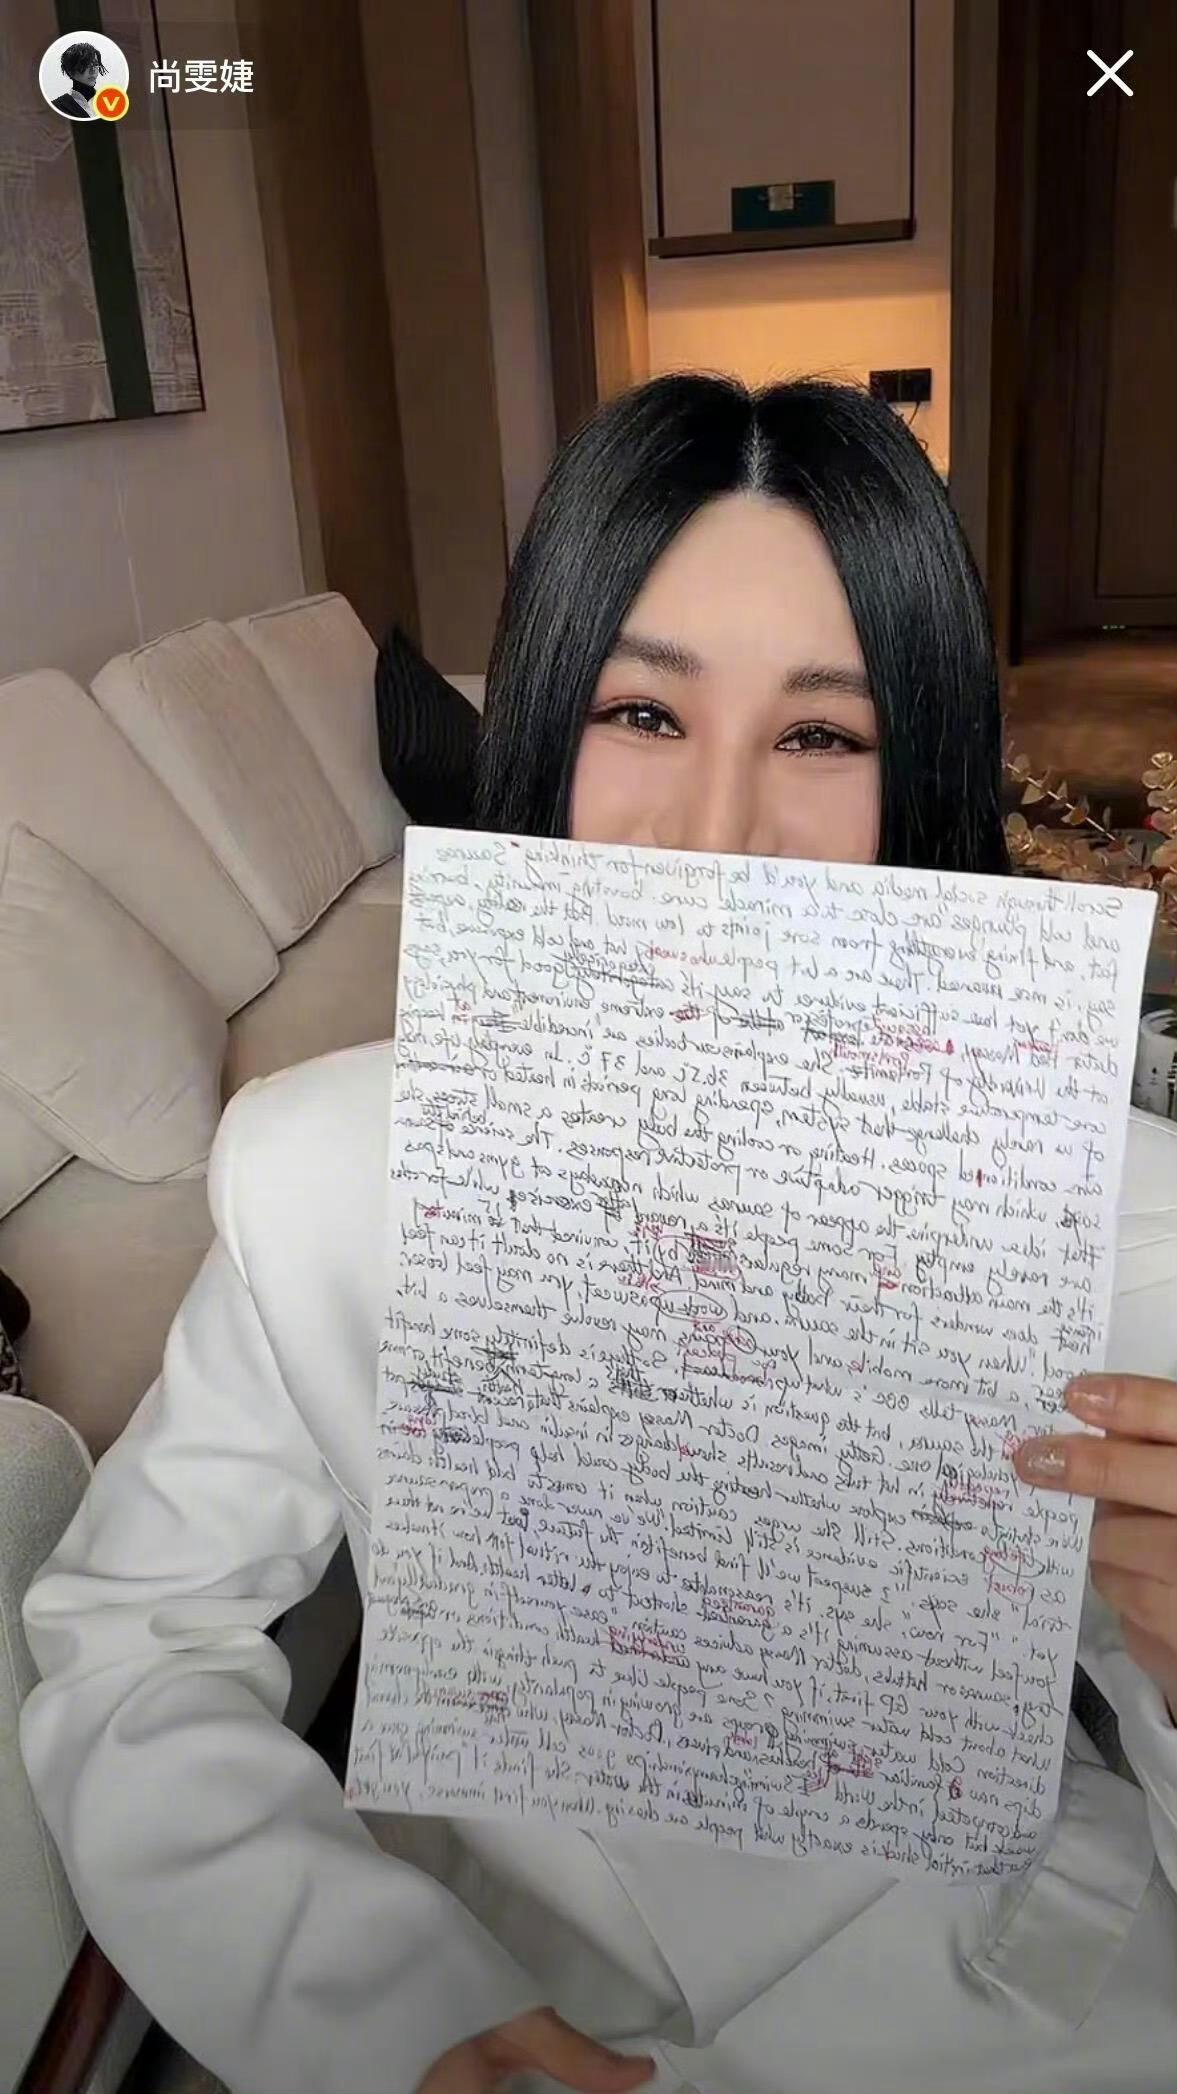 尚雯婕
Scroll through social media and you'd be forgiven for thinking Saunas
and cold plunges are close to a miracle cure. boosting immunity, burning
fat, and fixing everything from sore joints to low mood. But the reality, experts
say, is more nuanced. There are a lot people who swear by hot and cold exposure, but
we don't yet have sufficient evidence to say it's categorically good for you, says
doctor Massey, associate professor of the extreme environment and physiology
at the University of Portsmouth. She explains our bodies are incredible at keeping
core temperature stable, usually between 36.5°C and 37°C. In everyday life, many
of us rarely challenge that system, spending long periods in heated or
air conditioned spaces. Heating or cooling the body creates a small stress, she
says, which may trigger adaptive or protective responses. The science is behind
that idea underpins the appear of saunas which nowadays at gyms and spas
are rarely empty. For some people it's a reward after exercise, while for others
it's the main attraction and many regulars by it, convinced that 15 minutes
heat does wonders for their body and mind. And there is no doubt it can feel
good. "When you sit in the sauna, and work up a sweat, you may feel looser,
a bit more mobile, and your may resolve themselves a bit,
Massey tells BBC's what up So there is definitely some benefit
in the sauna, but the question is whether that's a longterm benefit or more
one. Getty images. Doctor Massey explains that recent
people in hot tubs and results should changes in insulin and blood pressure
scientists explore whether heating the body could help people
with conditions. Still she urges caution when it comes to bold health claims
as scientific evidence is still limited. "We've never done a
trial," she says. "I suspect we'll find benefits in the future, but we're not there
yet." "For now," she says. it's reasonable to enjoy the ritual for how it makes
you feel without assuming it's a guaranteed shortcut to better health. And if you do
try saunas or hot tubs, doctor Massey advices caution "ease yourself in gradually and
check with your GP first, if you have any underlying health conditions or
What about cold water swimming? Some people like to push things in the opposite
direction Cold water swimming groups are growing in popularity, with
dips now a familiar at beaches and rivers. Doctor Massey, who
and competed in the World Ice Swimming championships goes cold water swimming once a
week but only spends a couple of minutes in the water. She finds it painful at first
But that initial shock is exactly what people are chasing. When you first immerse, you get